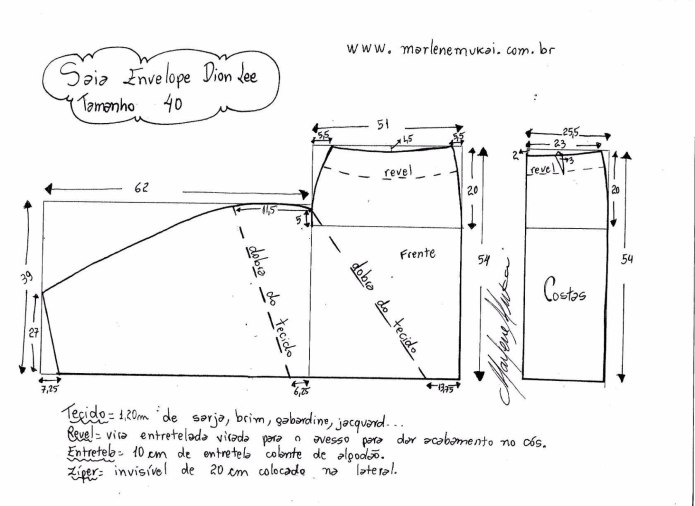 www. marlenemukai.com.br
Saia Envelope Dion Lee
Tamanho 40
51
5,5
1,5
5,5
revel
20
62
11,5
5
39
27
7,25
dobra do tecido
6,25
Frente
dobra do tecido
54
13,75
25,5
23
2
3
revel
20
54
Costas
Marlene Mukai
Tecido = 1,20m de sarja, brim, gabardine, jacquard...
Revel = vira entretelada virada para o avesso para dar acabamento no cós.
Entretela = 10 cm de entretela colante de algodão.
Zíper = invisível de 20 cm colocado na lateral.